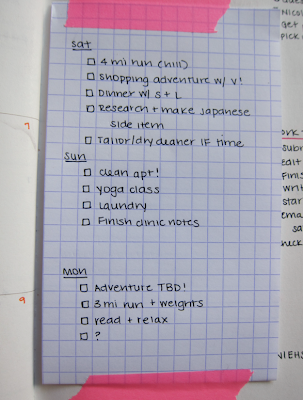 Nics
get
pick
sat
☐ 4 mi run (hill)
☐ Shopping adventure w/ V!
☐ Dinner w/ S + L
☐ Research + make Japanese
side item
☐ Tailor/dry cleaner IF time
sun
☐ clean apt!
☐ yoga class
☐ Laundry
☐ Finish clinic notes
mon
☐ Adventure TBD!
☐ 3 mi run + weights
☐ read + relax
☐ ?
7
9
ork
subm
edit
Finis
writ
star
ema
sa
heck